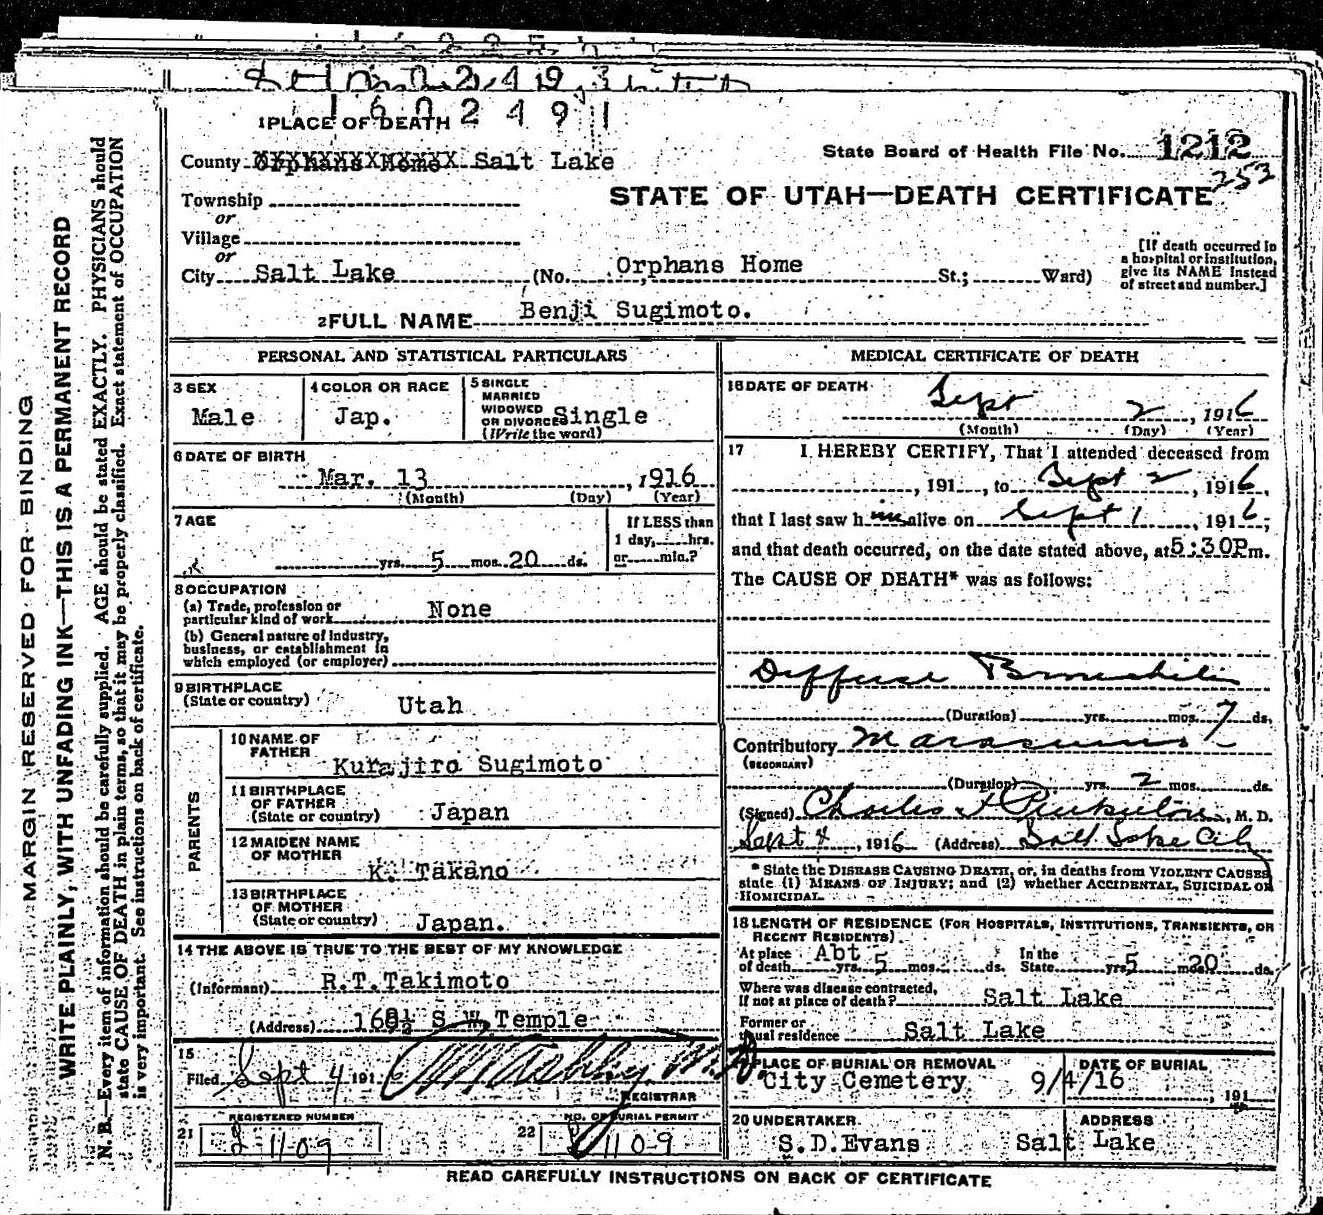 1602491
1 PLACE OF DEATH
County Orphans Home Salt Lake
State Board of Health File No. 1212
253
STATE OF UTAH—DEATH CERTIFICATE
Township
or
Village
or
City Salt Lake (No. Orphans Home St.; Ward)
[If death occurred in
a hospital or institution,
give its NAME instead
of street and number.]
2 FULL NAME Benji Sugimoto.
PERSONAL AND STATISTICAL PARTICULARS
3 SEX
Male
4 COLOR OR RACE
Jap.
5 SINGLE
MARRIED
WIDOWED
OR DIVORCED Single
(Write the word)
6 DATE OF BIRTH
Mar. 13, 1916
(Month) (Day) (Year)
7 AGE
yrs. 5 mos. 20 ds.
If LESS than
1 day, hrs.
or min.?
8 OCCUPATION
(a) Trade, profession or
particular kind of work None
(b) General nature of industry,
business, or establishment in
which employed (or employer)
9 BIRTHPLACE
(State or country) Utah
PARENTS
10 NAME OF
FATHER
Kurajiro Sugimoto
11 BIRTHPLACE
OF FATHER
(State or country) Japan
12 MAIDEN NAME
OF MOTHER
K. Takano
13 BIRTHPLACE
OF MOTHER
(State or country) Japan.
14 THE ABOVE IS TRUE TO THE BEST OF MY KNOWLEDGE
(Informant) R.T.Takimoto
(Address) 168½ S W. Temple
15
Filed Sept 4 1916 M.D.
REGISTRAR
REGISTERED NUMBER
21 1109
NO. OF BURIAL PERMIT
22 1109
MEDICAL CERTIFICATE OF DEATH
16 DATE OF DEATH
Sept 2, 1916
(Month) (Day) (Year)
17 I HEREBY CERTIFY, That I attended deceased from
, 191 , to Sept 2, 1916,
that I last saw him alive on Sept 1, 1916,
and that death occurred, on the date stated above, at 5:30P m.
The CAUSE OF DEATH* was as follows:
Diffuse Bronchitis
(Duration) yrs. mos. 7 ds.
Contributory Marasmus
(SECONDARY)
(Duration) yrs. 2 mos. ds.
(Signed) Charles F Pinkerton, M. D.
Sept 4, 1916 (Address) Salt Lake City
* State the DISEASE CAUSING DEATH, or, in deaths from VIOLENT CAUSES,
state (1) MEANS OF INJURY; and (2) whether ACCIDENTAL, SUICIDAL OR
HOMICIDAL.
18 LENGTH OF RESIDENCE (FOR HOSPITALS, INSTITUTIONS, TRANSIENTS, OR
RECENT RESIDENTS)
At place of death Abt yrs. 5 mos. ds. In the State yrs. 5 mos. 20 ds.
Where was disease contracted,
if not at place of death? Salt Lake
Former or
usual residence Salt Lake
PLACE OF BURIAL OR REMOVAL
City Cemetery
DATE OF BURIAL
9/4/16, 191
20 UNDERTAKER
S.D.Evans
ADDRESS
Salt Lake
READ CAREFULLY INSTRUCTIONS ON BACK OF CERTIFICATE
MARGIN RESERVED FOR BINDING
WRITE PLAINLY, WITH UNFADING INK—THIS IS A PERMANENT RECORD
N. B.—Every item of information should be carefully supplied. AGE should be stated EXACTLY. PHYSICIANS should
state CAUSE OF DEATH in plain terms, so that it may be properly classified. Exact statement of OCCUPATION
is very important. See instructions on back of certificate.